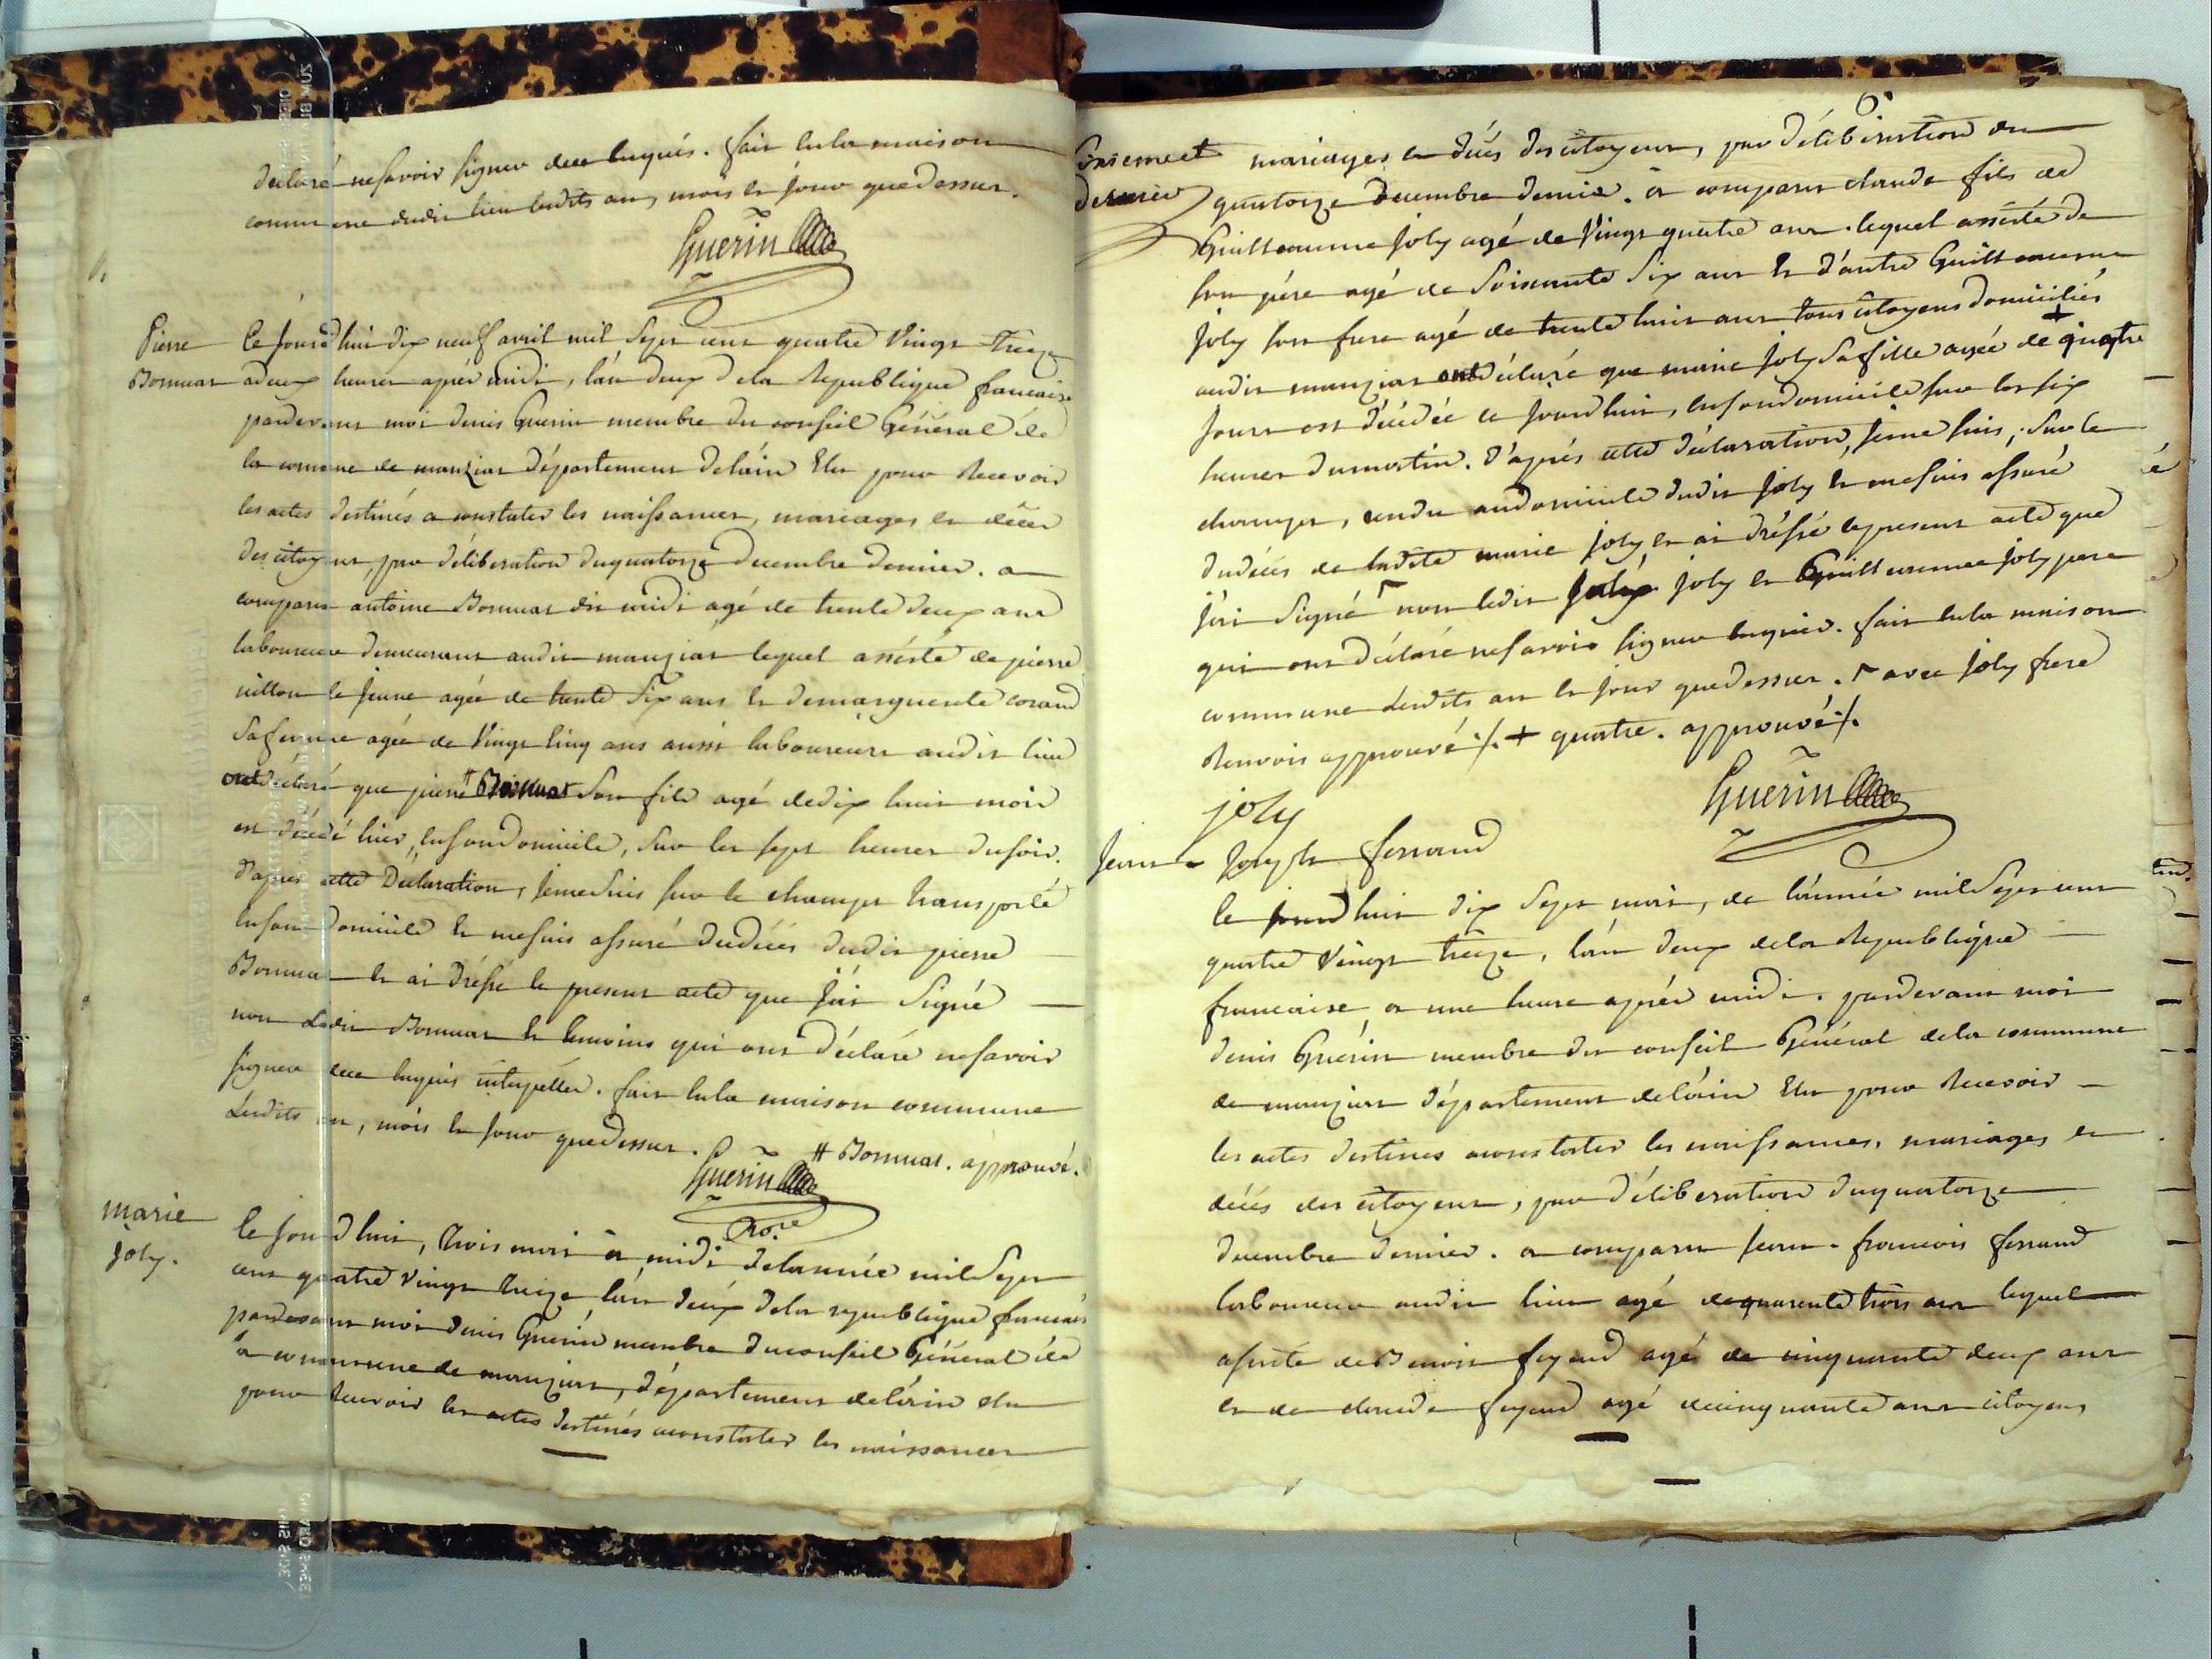 déclaré ne savoir signer de ce enquis. fait en la maison
commune dudit lieu lesdits an, mois et jour que dessus.
Guerin
Pierre
Bornuat
Ce jourdhui dix neuf avril mil sept cent quatre vingt treize
a deux heures aprés midi, l'an deux de la Republique francaise
pardevant moi denis Guerin membre du conseil Général de
la comune de manziat département de lain Elu pour Recevoir
les actes destinés a constater les naissances, mariages et décès
des citoyens, par délibération du quatorze decembre dernier. a
comparu antoine Bornuat dit midi agé de trente deux ans
laboureur demeurant audit manziat lequel assisté de pierre
le jeune agée de trente six ans et de marguerite
sa femme agée de vingt cinq ans aussi laboureurs audit lieu
ont déclaré que pierre # Bornuat son fils agé de dix huit mois
est décédé hier, en son domicile, sur les sept heures du soir.
d'apres cette Déclaration, je me suis sur le champt transporté
en son domicile et me suis assuré du décès dudit pierre
Bornuat et ai dréssé le present acte que j'ai signé
non ledit Bornuat et temoins qui ont déclaré ne savoir
signer de ce enquis interpellés. fait en la maison commune
lesdits an, mois et jour que dessus.
# Bornuat. approuvé.
Guerin
marie
joly.
le jourd hui, trois mai a midi de lannée mil sept
cent quatre vingt treize l'an deux de la republique francais
pardevant moi denis Guerin membre du conseil Général de
la commune de manziat, département de l'ain elu
pour Recevoir les actes destinés a constater les naissances
6
mariages et décés des citoyens, par délibération du
quatorze decembre dernier. a comparu claude fils de
Guillaume joly agé de vingt quatre ans. lequel assisté de
son pére agé de soixante six ans et d'autre Guillaume
joly son frere agé de trente huit ans tous citoyens domiciliés
audit manziat ont déclaré que marie joly sa fille agée de + quatre
jours est décédée ce jourdhui, en son domicile sur les six
heures du matin. d'aprés cette déclaration, je me suis, sur le
champt, rendu au domicile dudit joly et me suis assuré
du décés de ladite marie joly, et ai dréssé le present acte que
j'ai signé ┌ non ledit joly et Guillaume joly pere
qui ont déclaré ne savoir signer enquis. fait en la maison
commune lesdits an et jour que dessus. ┌ avec joly frere
Renvois approuvé ⁒. + quatre. approuvé ⁒.
joly
Guerin
Jean = Joseph ferrand
le jourdhui dix sept mai, de l'année mil sept cent
quatre vingt treize, l'an deux de la Republique
francaise a une heure aprés midi. pardevant moi
denis Guérin membre du conseil Général de la commune
de manziat département de l'ain Elu pour Recevoir
les actes destinés a constater les naissances, mariages et
décés des citoyens, par délibération du quatorze
decembre dernier. a comparu jean = francois ferrand
laboureur audit lieu agé de quarente trois ans lequel
assisté de Benoit feyeud agé de cinquante deux ans
et de claude feyeud agé de cinquante ans citoyens